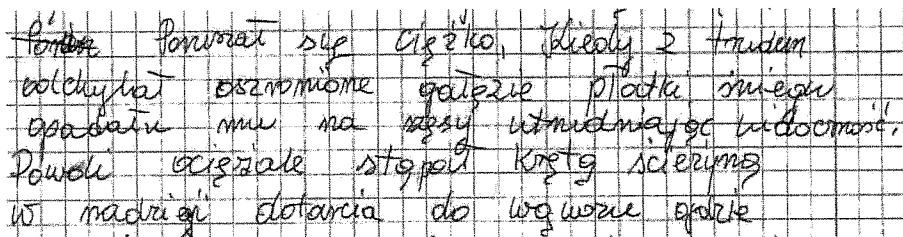 Poruszał się ciężko. Kiedy z trudem
odchylał oszronione gałęzie płatki śniegu
opadały mu na rzęsy utrudniając widoczność.
Powoli ociężale stąpał krętą ścieżyną
w nadzieji dotarcia do wąwozu gdzie